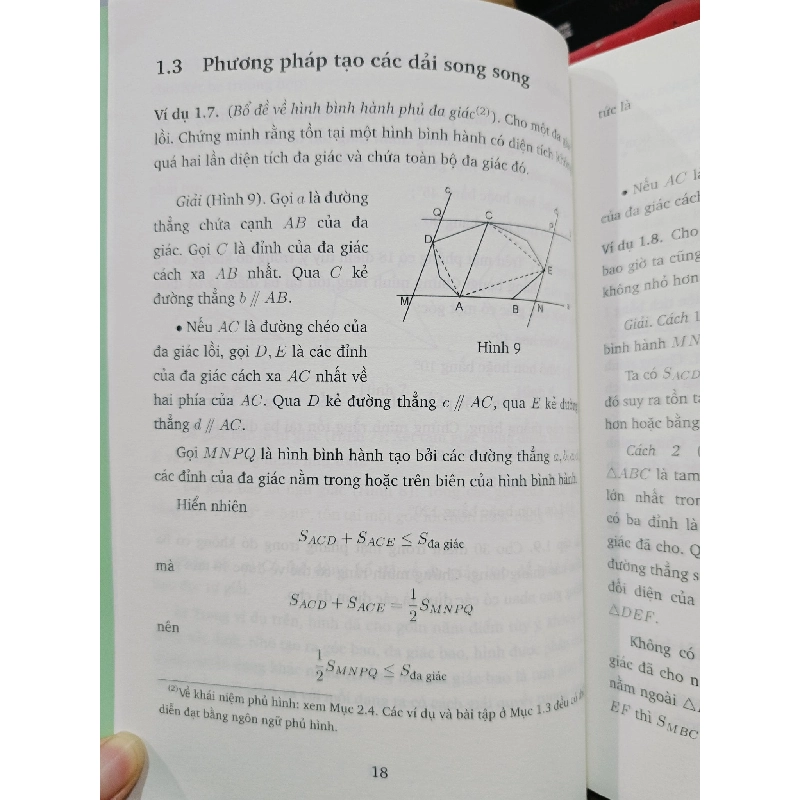 1.3 Phương pháp tạo các dải song song
Ví dụ 1.7. (Bổ đề về hình bình hành phủ đa giác(2)). Cho một đa
lồi. Chứng minh rằng tồn tại một hình bình hành có diện tích
quá hai lần diện tích đa giác và chứa toàn bộ đa giác đó.
Giải (Hình 9). Gọi a là đường
thẳng chứa cạnh AB của đa
giác. Gọi C là đỉnh của đa giác
cách xa AB nhất. Qua C kẻ
đường thẳng b // AB.
• Nếu AC là đường chéo của
đa giác lồi, gọi D, E là các đỉnh
của đa giác cách xa AC nhất về
Q C P
D E
M A B N
Hình 9
hai phía của AC. Qua D kẻ đường thẳng c // AC, qua E kẻ đường
thẳng d // AC.
Gọi MNPQ là hình bình hành tạo bởi các đường thẳng
các đỉnh của đa giác nằm trong hoặc trên biên của hình bình hành
Hiển nhiên
S_ACD + S_ACE ≤ S_đa giác
mà
S_ACD + S_ACE = 1/2 S_MNPQ
nên
1/2 S_MNPQ ≤ S_đa giác
(2)Về khái niệm phủ hình: xem Mục 2.4. Các ví dụ và bài tập ở Mục 1.3 đều có
diễn đạt bằng ngôn ngữ phủ hình.
18
tức là
• Nếu AC
của đa giác các
Ví dụ 1.8. Cho
bao giờ ta cũng
không nhỏ hơn
Giải. Cách 1
bình hành MN
Ta có S_ACD
đó suy ra tồn t
hơn hoặc bằng
Cách 2
△ABC là tam
lớn nhất tron
có ba đỉnh là
giác đã cho. Q
đường thẳng s
đối diện của
△DEF.
Không có
giác đã cho n
nằm ngoài △
EF thì S_MBC